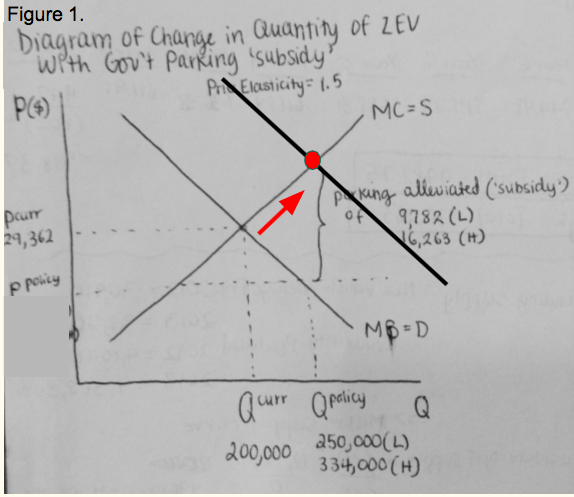 Figure 1.
Diagram of Change in Quantity of ZEV
with Gov't Parking 'subsidy'
Price Elasticity = 1.5
P($)
MC=S
parking alleviated ('subsidy')
of 9,782 (L)
16,263 (H)
Pcurr
29,362
P policy
MB=D
Qcurr Qpolicy Q
200,000 250,000(L)
334,000(H)